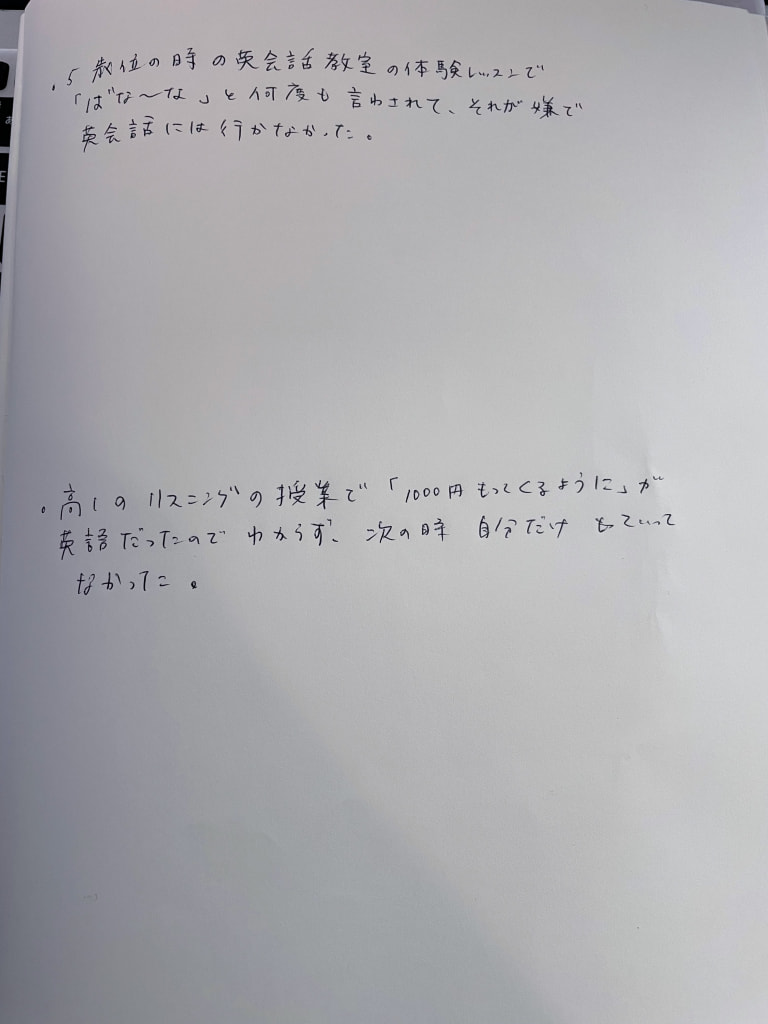 ・5歳位の時の英会話教室の体験レッスンで
「ばな〜な」と何度も言わされて、それが嫌で
英会話には行かなかった。
・高1のリスニングの授業で「1000円もってくるように」が
英語だったのでわからず、次の時 自分だけ もっていって
なかった。